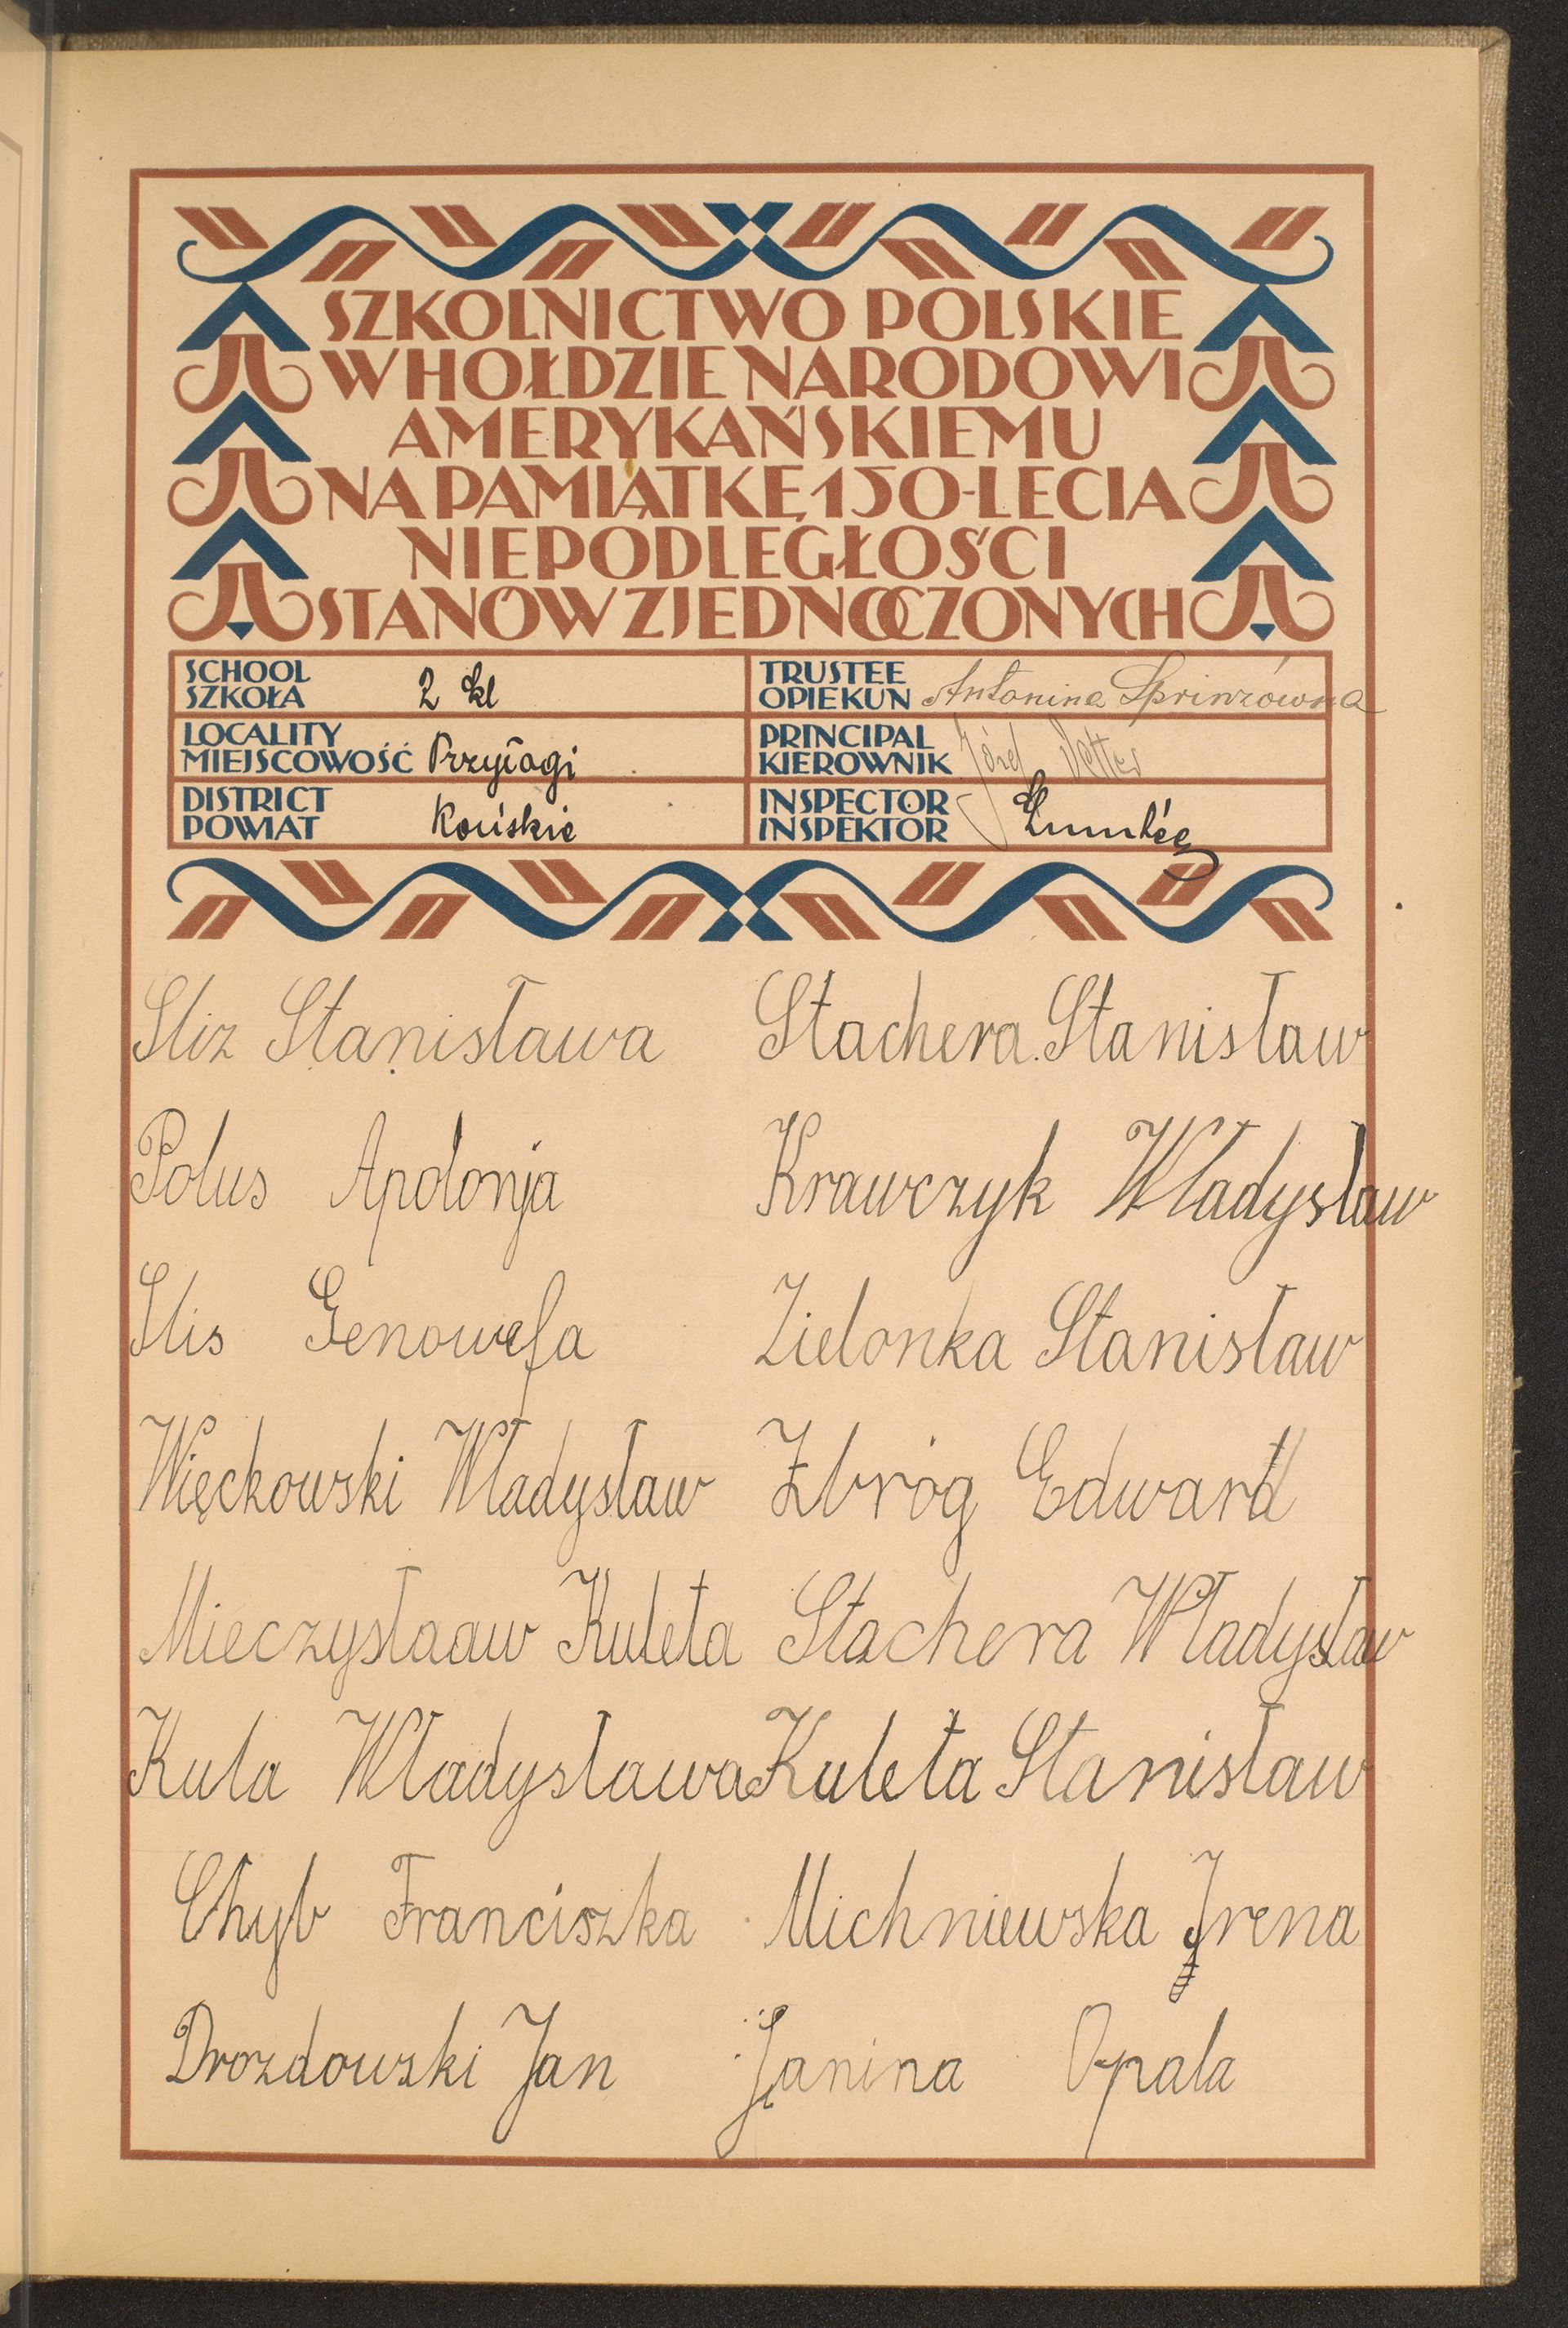 SZKOLNICTWO POLSKIE
W HOŁDZIE NARODOWI
AMERYKAŃSKIEMU
NA PAMIĄTKĘ 150-LECIA
NIEPODLEGŁOŚCI
STANÓW ZJEDNOCZONYCH
SCHOOL
SZKOŁA 2 kl
TRUSTEE
OPIEKUN Antonina Sprinzówna
LOCALITY
MIEJSCOWOŚĆ Przyłogi
PRINCIPAL
KIEROWNIK Józef
DISTRICT
POWIAT Końskie
INSPECTOR
INSPEKTOR
Sliz Stanisława
Stachera Stanisław
Polus Apolonja
Krawczyk Władysław
Slis Genowefa
Zielonka Stanisław
Więckowski Władysław
Zbróg Edward
Mieczysłaaw Kuleta
Stachera Władysław
Kula Władysława
Kuleta Stanisław
Chyb Franciszka
Michniewska Irena
Drozdowski Jan
Janina Opala